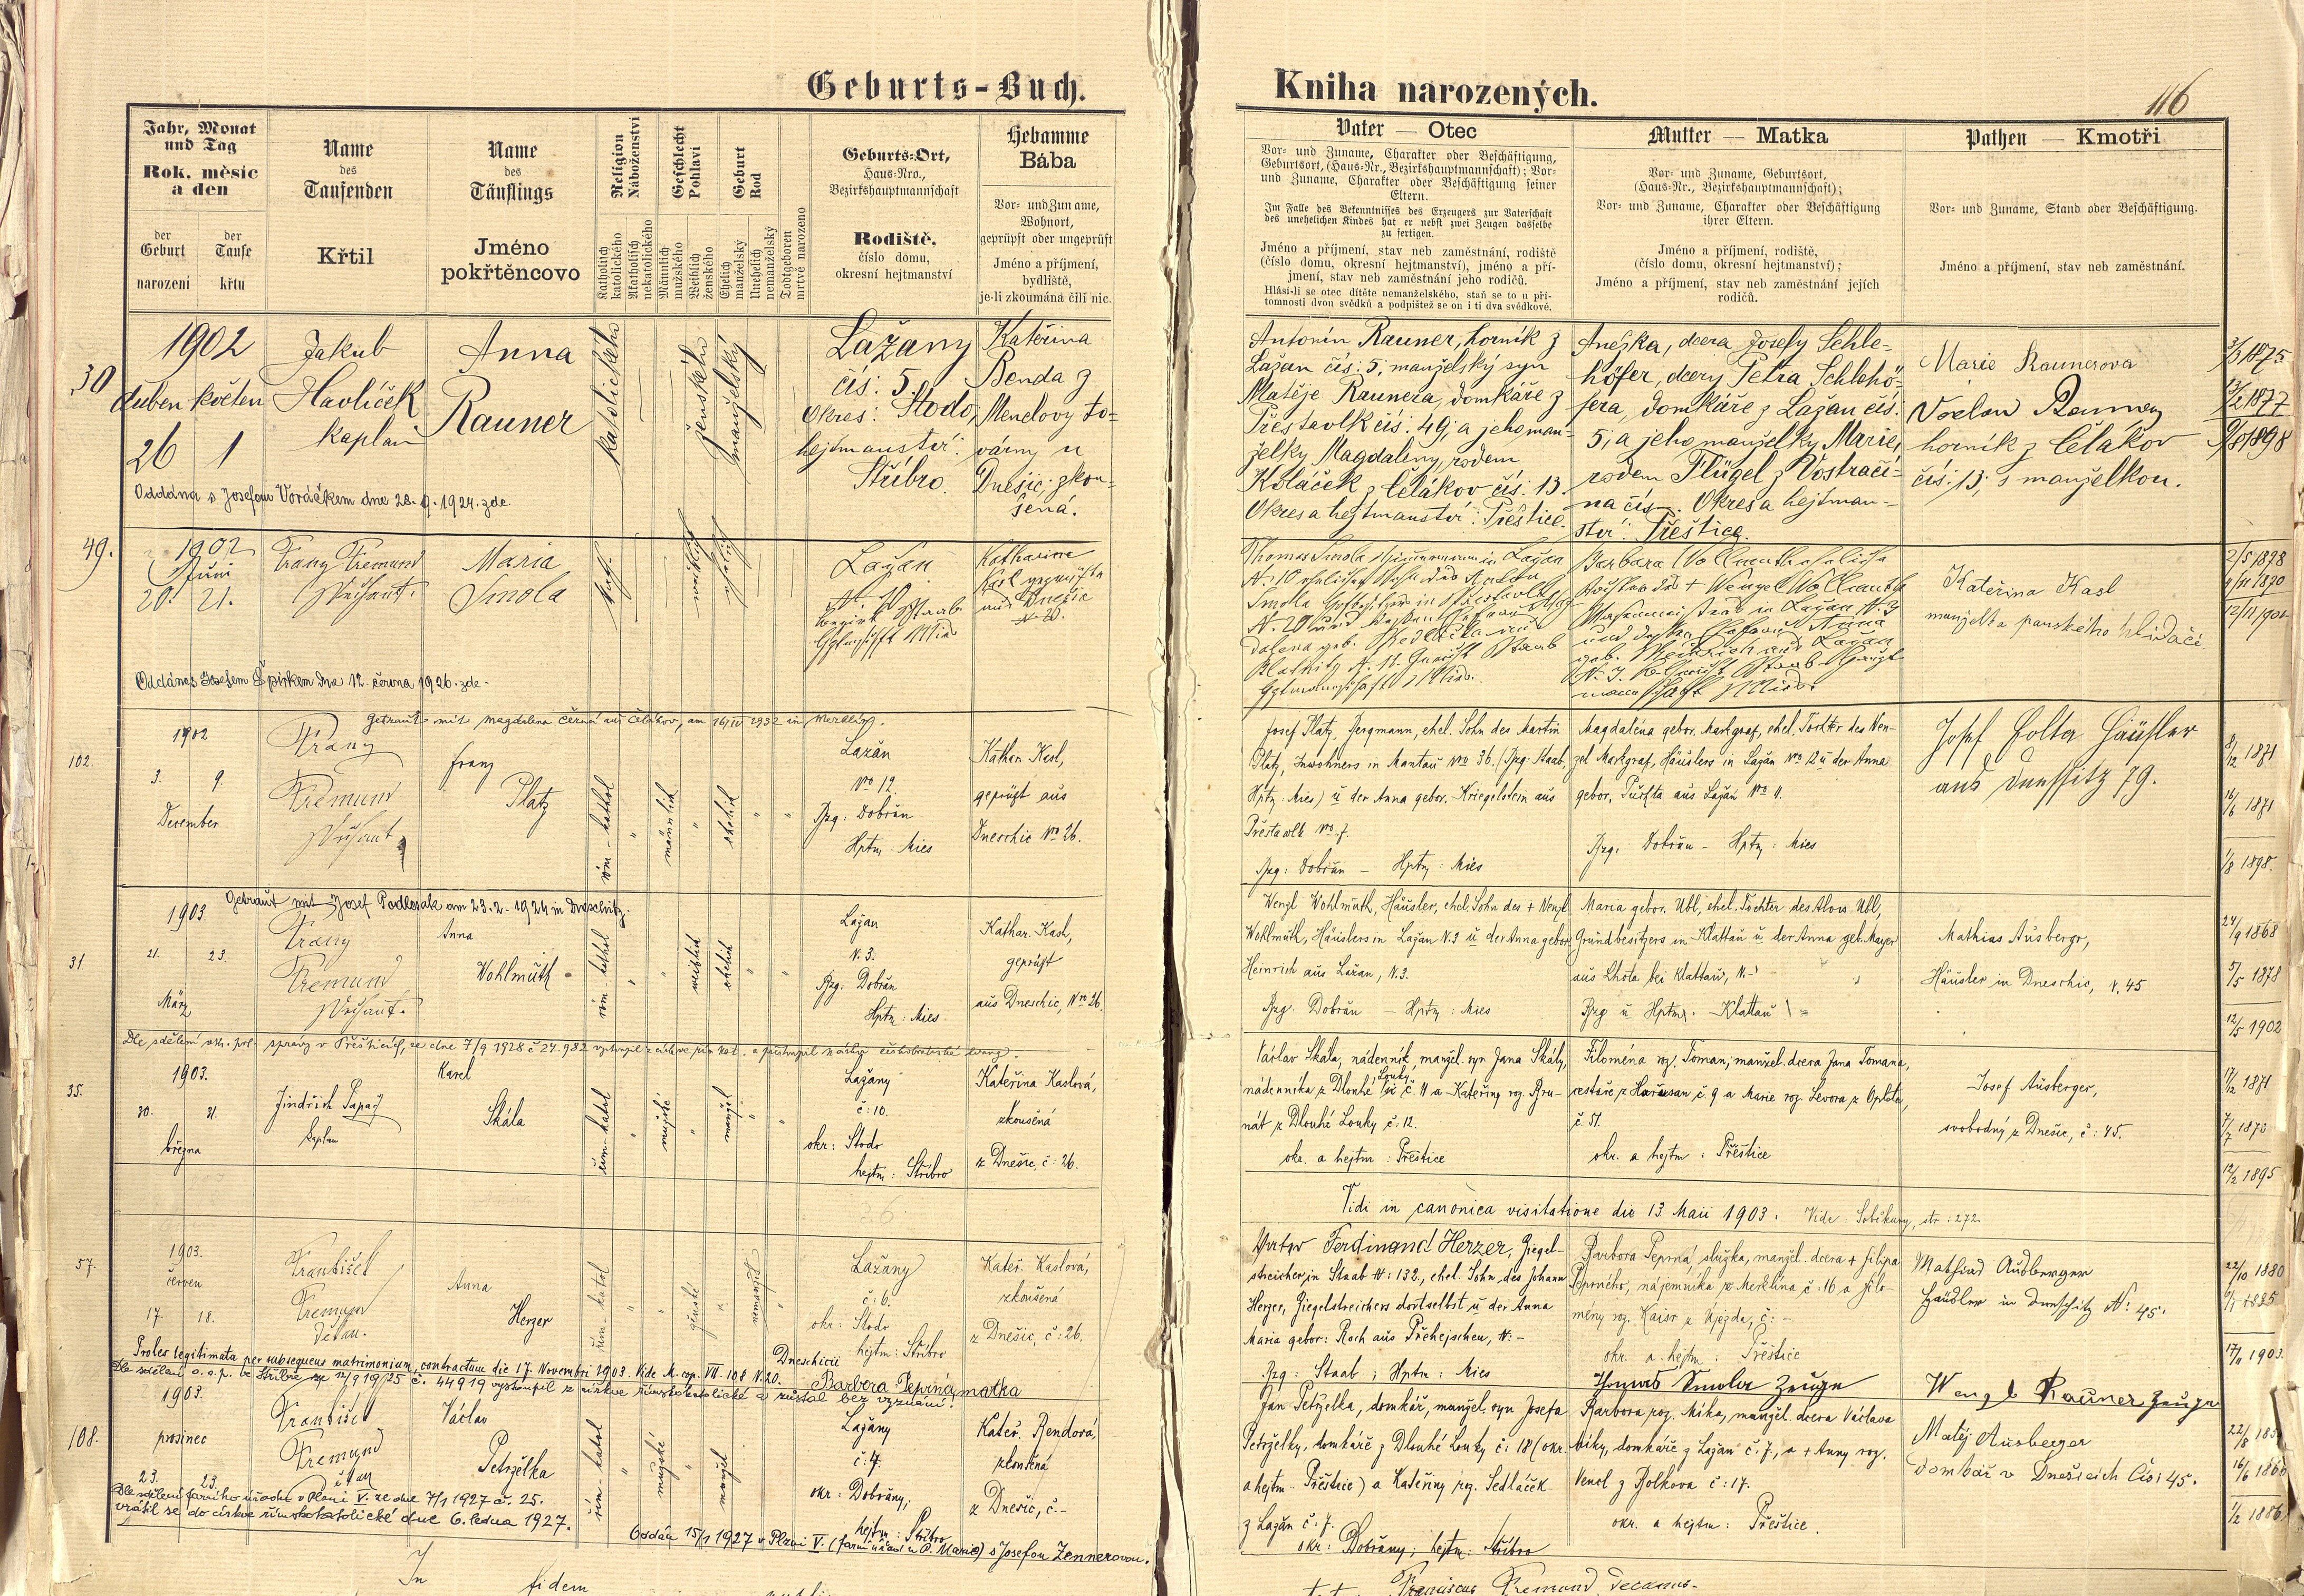 Geburts-Buch.
Kniha narozených.
116
Jahr, Monat
und Tag
Rok, měsíc
a den
der
Geburt
narození
der
Taufe
křtu
Name
des
Taufenden
Křtil
Name
des
Täuflings
Jméno
pokřtěncovo
Religion
Náboženství
Katholisch
katolického
Akatholisch
nekatolického
Geschlecht
Pohlaví
Männlich
mužského
Weiblich
ženského
Geburt
Rod
Ehelich
manželský
Unehelich
nemanželský
Todtgeboren
mrtvě narozeno
Geburts-Ort,
Haus-Nro.,
Bezirkshauptmannschaft
Rodiště,
číslo domu,
okresní hejtmanství
Hebamme
Bába
Vor- und Zuname,
Wohnort,
geprüpft oder ungeprüft
Jméno a příjmení,
bydliště,
je-li zkoumána čili nic.
Vater — Otec
Vor- und Zuname, Charakter oder Beschäftigung,
Geburtsort, (Haus-Nr., Bezirkshauptmannschaft); Vor-
und Zuname, Charakter oder Beschäftigung seiner
Eltern.
Im Falle des Bekenntnisses des Erzeugers zur Vaterschaft
des unehelichen Kindes hat er nebst zwei Zeugen dasselbe
zu fertigen.
Jméno a příjmení, stav neb zaměstnání, rodiště
(číslo domu, okresní hejtmanství), jméno a pří-
jmení, stav neb zaměstnání jeho rodičů.
Hlásí-li se otec dítěte nemanželského, staň se to u pří-
tomnosti dvou svědků a podpištež se on i ti dva svědkové.
Mutter — Matka
Vor- und Zuname, Geburtsort,
(Haus-Nr., Bezirkshauptmannschaft);
Vor- und Zuname, Charakter oder Beschäftigung
ihrer Eltern.
Jméno a příjmení, rodiště,
(číslo domu, okresní hejtmanství);
Jméno a příjmení, stav neb zaměstnání jejich
rodičů.
Pathen — Kmotři
Vor- und Zuname, Stand oder Beschäftigung.
Jméno a příjmení, stav neb zaměstnání.
30
1902
duben květen
26 1
Jakub
Havlíček
kaplan
Anna
Rauner
katolického
ženského
manželský
Lažany
čís: 5.
Okres: Stodo,
hejtmanství:
Stříbro.
Kateřina
Benda z
Menclovy to-
várny u
Dnešic; zkou-
šená.
Antonín Rauner, horník z
Lažan čís: 5; manželský syn
Matěje Raunera, domkáře z
Přestavlk čís: 49; a jeho man-
želky Magdaleny, rodem
Koláček z Čelákov čís: 13.
Okres a hejtmanství: Přeštice.
Anežka, dcera Josefy Schle-
höfer, dcery Petra Schlehö-
fera, domkáře z Lažan čís:
5; a jeho manželky Marie,
rodem Flügel z Vostrači-
na čís. Okres a hejtman-
ství: Přeštice.
Marie Raunerova
Václav Rauner
horník z Čelákov
čís: 13; s manželkou.
3/3 1875
13/2 1877
9/8 1898
Oddána s Josefem Voráčkem dne 28. 9. 1924. zde.
49.
1902
Juni
20. 21.
Franz Fremund
Dechant.
Maria
Smola
kath.
weiblich
ehelich
Lažan
N. 10
Bezirk Staab
Hptmschft Mies
Katharina
Kasl geprüfte
aus Dnešic
N. 26.
Thomas Smola Zimmermann in Lažan
N. 10 ehelicher Sohn des Anton
N. 20 und dessen Ehefrau Mag-
dalena geb.
Barbara Wollmuth eheliche
Tochter des + Wenzel Wollmuth
in Lažan N. 3
und dessen Ehefrau Anna
geb. Heinrich aus Lažan
Kateřina Kasl
manželka panského hlídače
2/5 1878
4/11 1870
12/11 1901
Oddána s Josefem Špirkem dne 12. června 1926. zde.
Getraut mit Magdalena Černá aus Čelákov, am 16/IV 1932 in Merklin.
102.
1902
3. 9.
December
Franz
Fremund
Dechant
Franz
Platz
röm-kathol
männlich
ehelich
Lažan
No 12.
Bzg: Dobřan
Hptm: Mies
Kathar. Kasl,
geprüft aus
Dneschic No 26.
Josef Platz, Bergmann, ehel. Sohn des Martin
Platz, Inwohners in Mantau No 36. (Bzg: Staab,
Hptm: Mies) u der Anna gebor. Kriegelstein aus
Přestawlk No. 7.
Bzg: Dobřan — Hptm: Mies
Magdaléna gebor. Markgraf, ehel. Tochter des Wen-
zel Markgraf, Häuslers in Lažan No 12 u der Anna
gebor. Purchta aus Lažan No 11.
Bzg: Dobřan — Hptm: Mies
Josef Folta Häusler
aus Dneschitz 79.
8/12 1871
16/6 1871
1/8 1898.
Getraut mit Josef Podlesak am 23.2.1924 in Dneschitz.
31.
1903
21. 23.
März
Franz
Fremund
Dechant.
Anna
Wohlmuth
röm-kathol
weiblich
ehelich
Lažan
N. 3.
Bzg: Dobřan
Hptm: Mies
Kathar. Kasl,
geprüft
aus Dneschic, Nro 26.
Wenzl Wohlmuth, Häusler, ehel. Sohn des + Wenzl
Wohlmuth, Häuslers in Lažan N. 3 u der Anna gebor
Heinrich aus Lažan, N. 3.
Bzg. Dobřan — Hptm: Mies
Maria gebor. Ubl, ehel. Tochter des Alois Ubl,
Grundbesitzers in Klattau u der Anna geb. Mayer
aus Lhota bei Klattau, N-
Bzg u Hptm. - Klattau
Mathias Ausbergr,
Häusler in Dneschic, N. 45
24/9 1868
5/5 1878
12/5 1902
Dle sdělení okr. pol. správy v Přešticích, ze dne 7/9 1928 č 24.982 vystoupil z církve řím. kat. a přistoupil k církvi českobratrské evang.
35.
1903.
20. 21.
března
Jindřich Papaž
kaplan
Karel
Skála
řím-katol
mužské
manžel
Lažany
č: 10.
okr: Stodo
hejtm: Stříbro
Kateřina Kaslová,
zkoušená
z Dnešic, č: 26.
Václav Skála, nádenník, manžel. syn Jana Skály,
nádenníka z Dlouhé Louky č. 11 a Kateřiny roz. Bru-
nát z Dlouhé Louky č: 12.
okr. a hejtm: Přeštice
Filoména roz. Toman, manžel. dcera Jana Tomana,
cestáře z Horšusan č. 9 a Marie roz. Levora z Oplota,
č. 51.
okr. a hejtm: Přeštice
Josef Ausberger,
svobodný z Dnešic, č: 45.
17/12 1871
7/7 1873
12/2 1895
Vidi in canonica visitatione die 13 Maii 1903. Vide: Soběkury, str: 272.
57.
1903.
červen
17. 18.
František
Fremund
děkan.
Anna
Herzer
řím-katol
ženské
nemanžel
Lažany
č: 6.
okr: Stodo
hejtm: Stříbro
Kateř. Kaslová,
zkoušená
z Dnešic, č: 26.
Vater Ferdinand Herzer, Ziegel-
streicher in Staab N: 132., ehel. Sohn, des Johann
Herzer, Ziegelstreichers dortselbst u der Anna
Maria gebor: Roch aus Přehejschen, N: -
Bzg: Staab; Hptm: Mies
Barbora Peprná, služka, manžel. dcera + Filipa
Peprného, nájemníka z Merklína č: 16 a Filo-
mény roz. Kaisr z Újezda, č: -
okr. a hejtm: Přeštice
Thomas Smola Zeuge
Mathias Ausberger
Häusler in Dneschitz N: 45.
Wenzl Rauner, Zeuge
22/10 1880
17/11 1903.
Proles legitimata per subsequens matrimonium, contractum die 17. Novembri 1903. Vide M. cop. VII. 108 N. 20. Dneschicii
Barbora Peprná, matka
Dle sdělení o. s. p. ve Stříbře ze 12/9 19/25 č. 44919 vystoupil z církve římskokatolické a zůstal bez vyznání.
108.
1903.
prosinec
23. 23.
František
Fremund
děkan
Václav
Petrželka
řím-katol
mužské
manžel
Lažany
č: 7.
okr: Dobřany;
hejtm: Stříbro
Kateř. Bendová,
zkoušená
z Dnešic, č.-
Jan Petrželka, domkář, manžel. syn Josefa
Petrželky, domkáře z Dlouhé Louky č: 18 (okr.
a hejtm. Přeštice) a Kateřiny roz. Sedláček
z Lažan č: 7.
okr: Dobřany; hejtm: Stříbro
Barbora roz. Míka, manžel. dcera Václava
Míky, domkáře z Lažan č. 7., a + Anny roz.
Vencl z Bolkova č: 17.
okr. a hejtm: Přeštice.
Matěj Ausberger
domkář v Dnešicích čís: 45.
16/6 1860
1/2 1886
Dle sdělení farního úřadu v Plzni V. ze dne 7/1 1927 č. 25.
vrátil se do církve římskokatolické dne 6. ledna 1927.
Oddán 15/1 1927 v Plzni V. (farní úřad u P. Marie) s Josefou Zennerovou.
In fidem
Franciscus Fremund, Decanus.